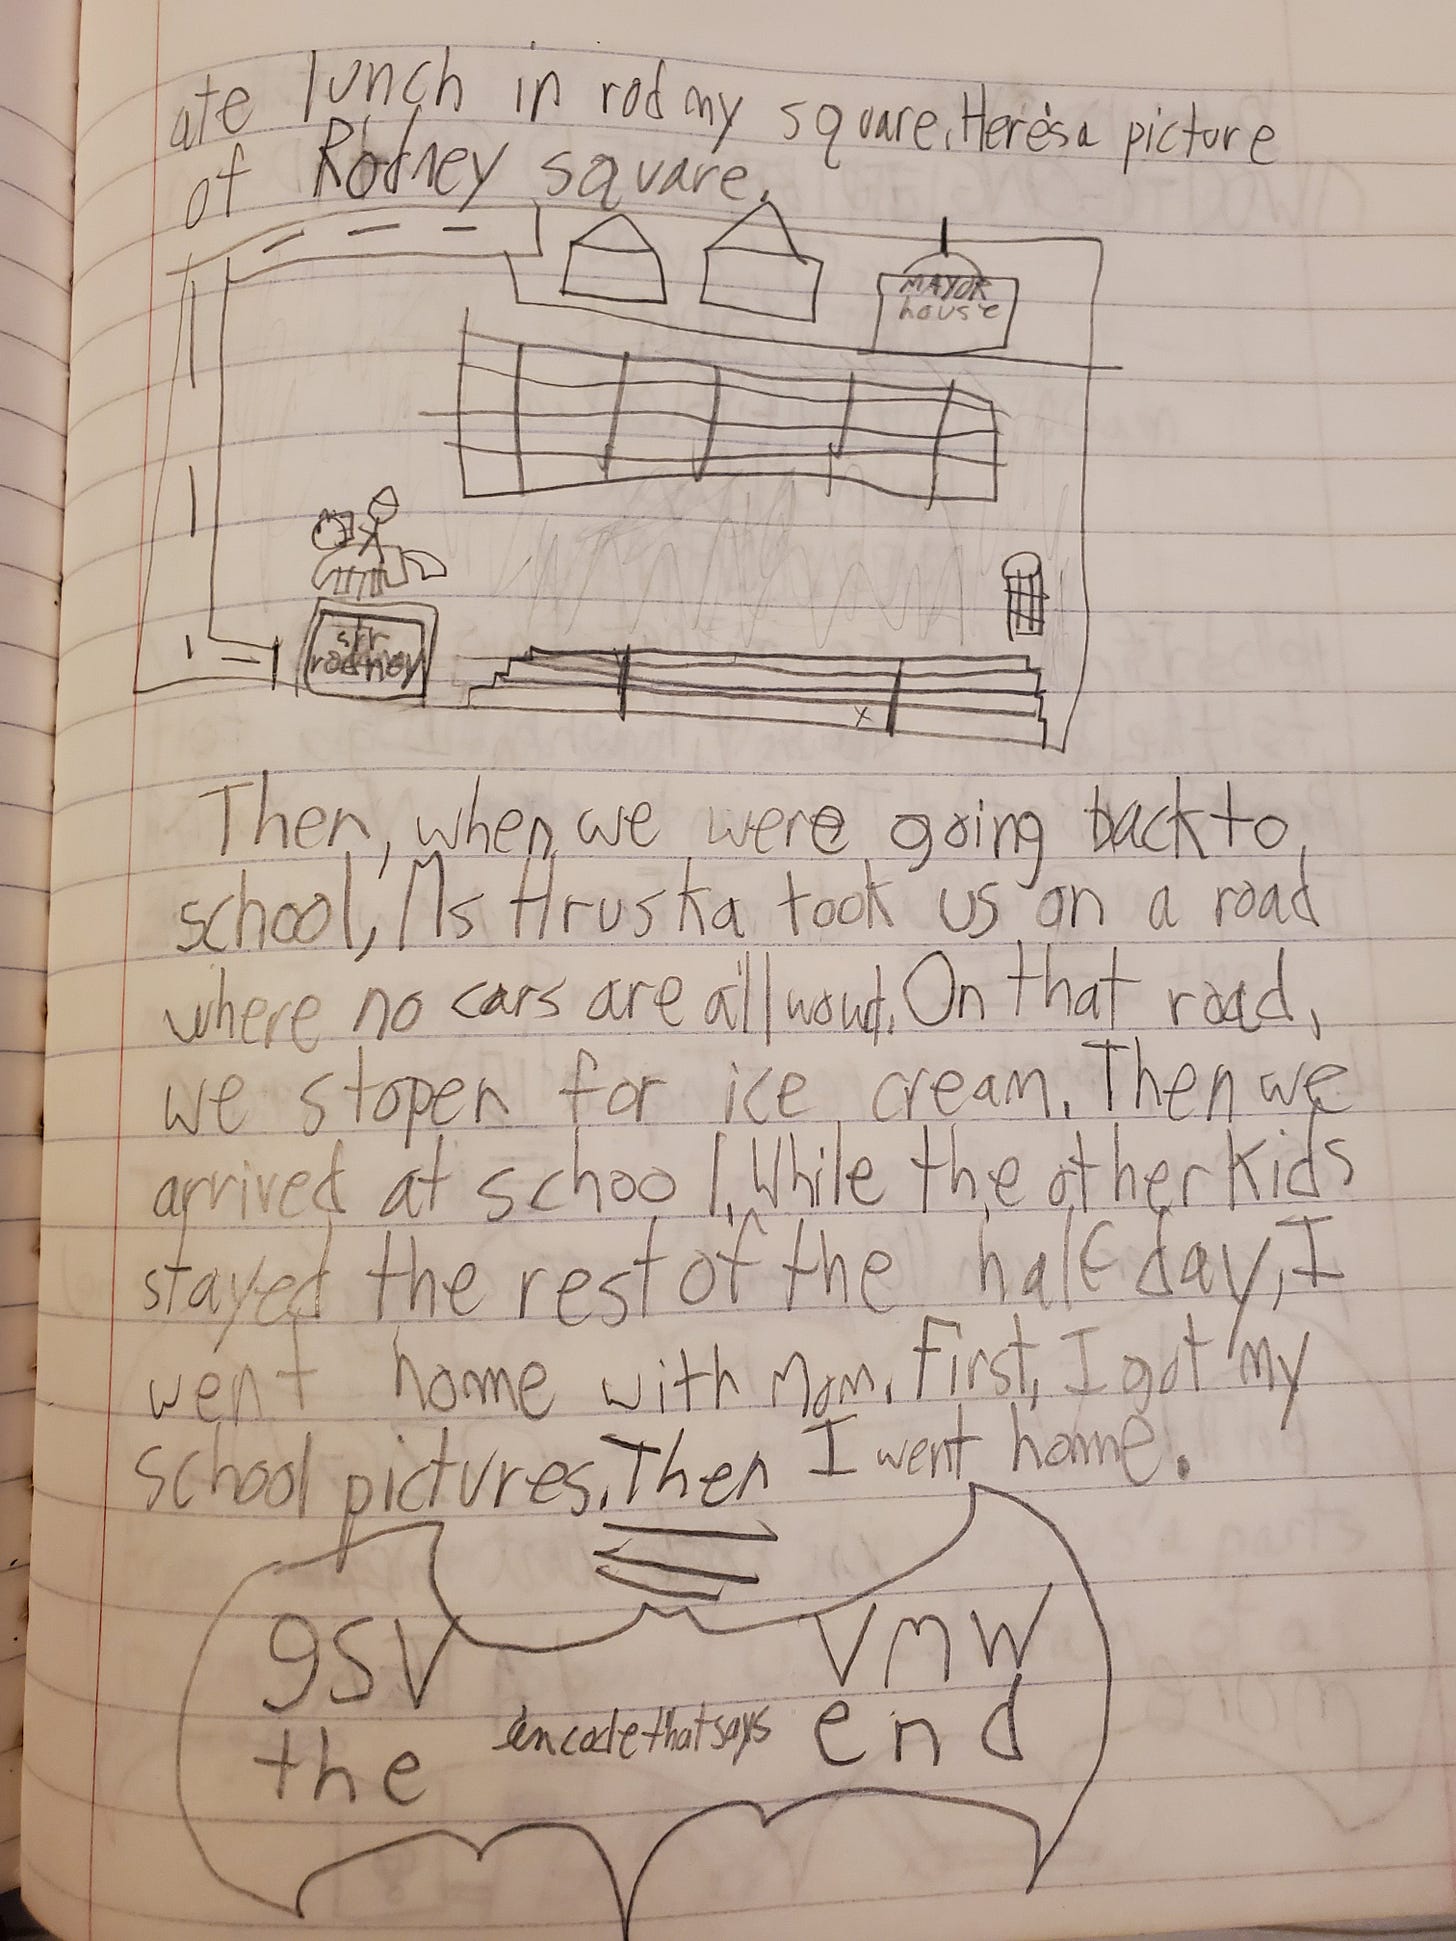 ate lunch in rodmy square. Here's a picture
of Rodney square.
MAYOR
house
sir
rodney
Then, when we were going back to
school, Ms Hruska took us on a road
where no cars are allwoud. On that road,
we stopen for ice cream. Then we
arrived at school. While the other kids
stayed the rest of the half day, I
went home with Mom. First, I got my
school pictures. Then I went home.
gsv vmw
in code that says
the end